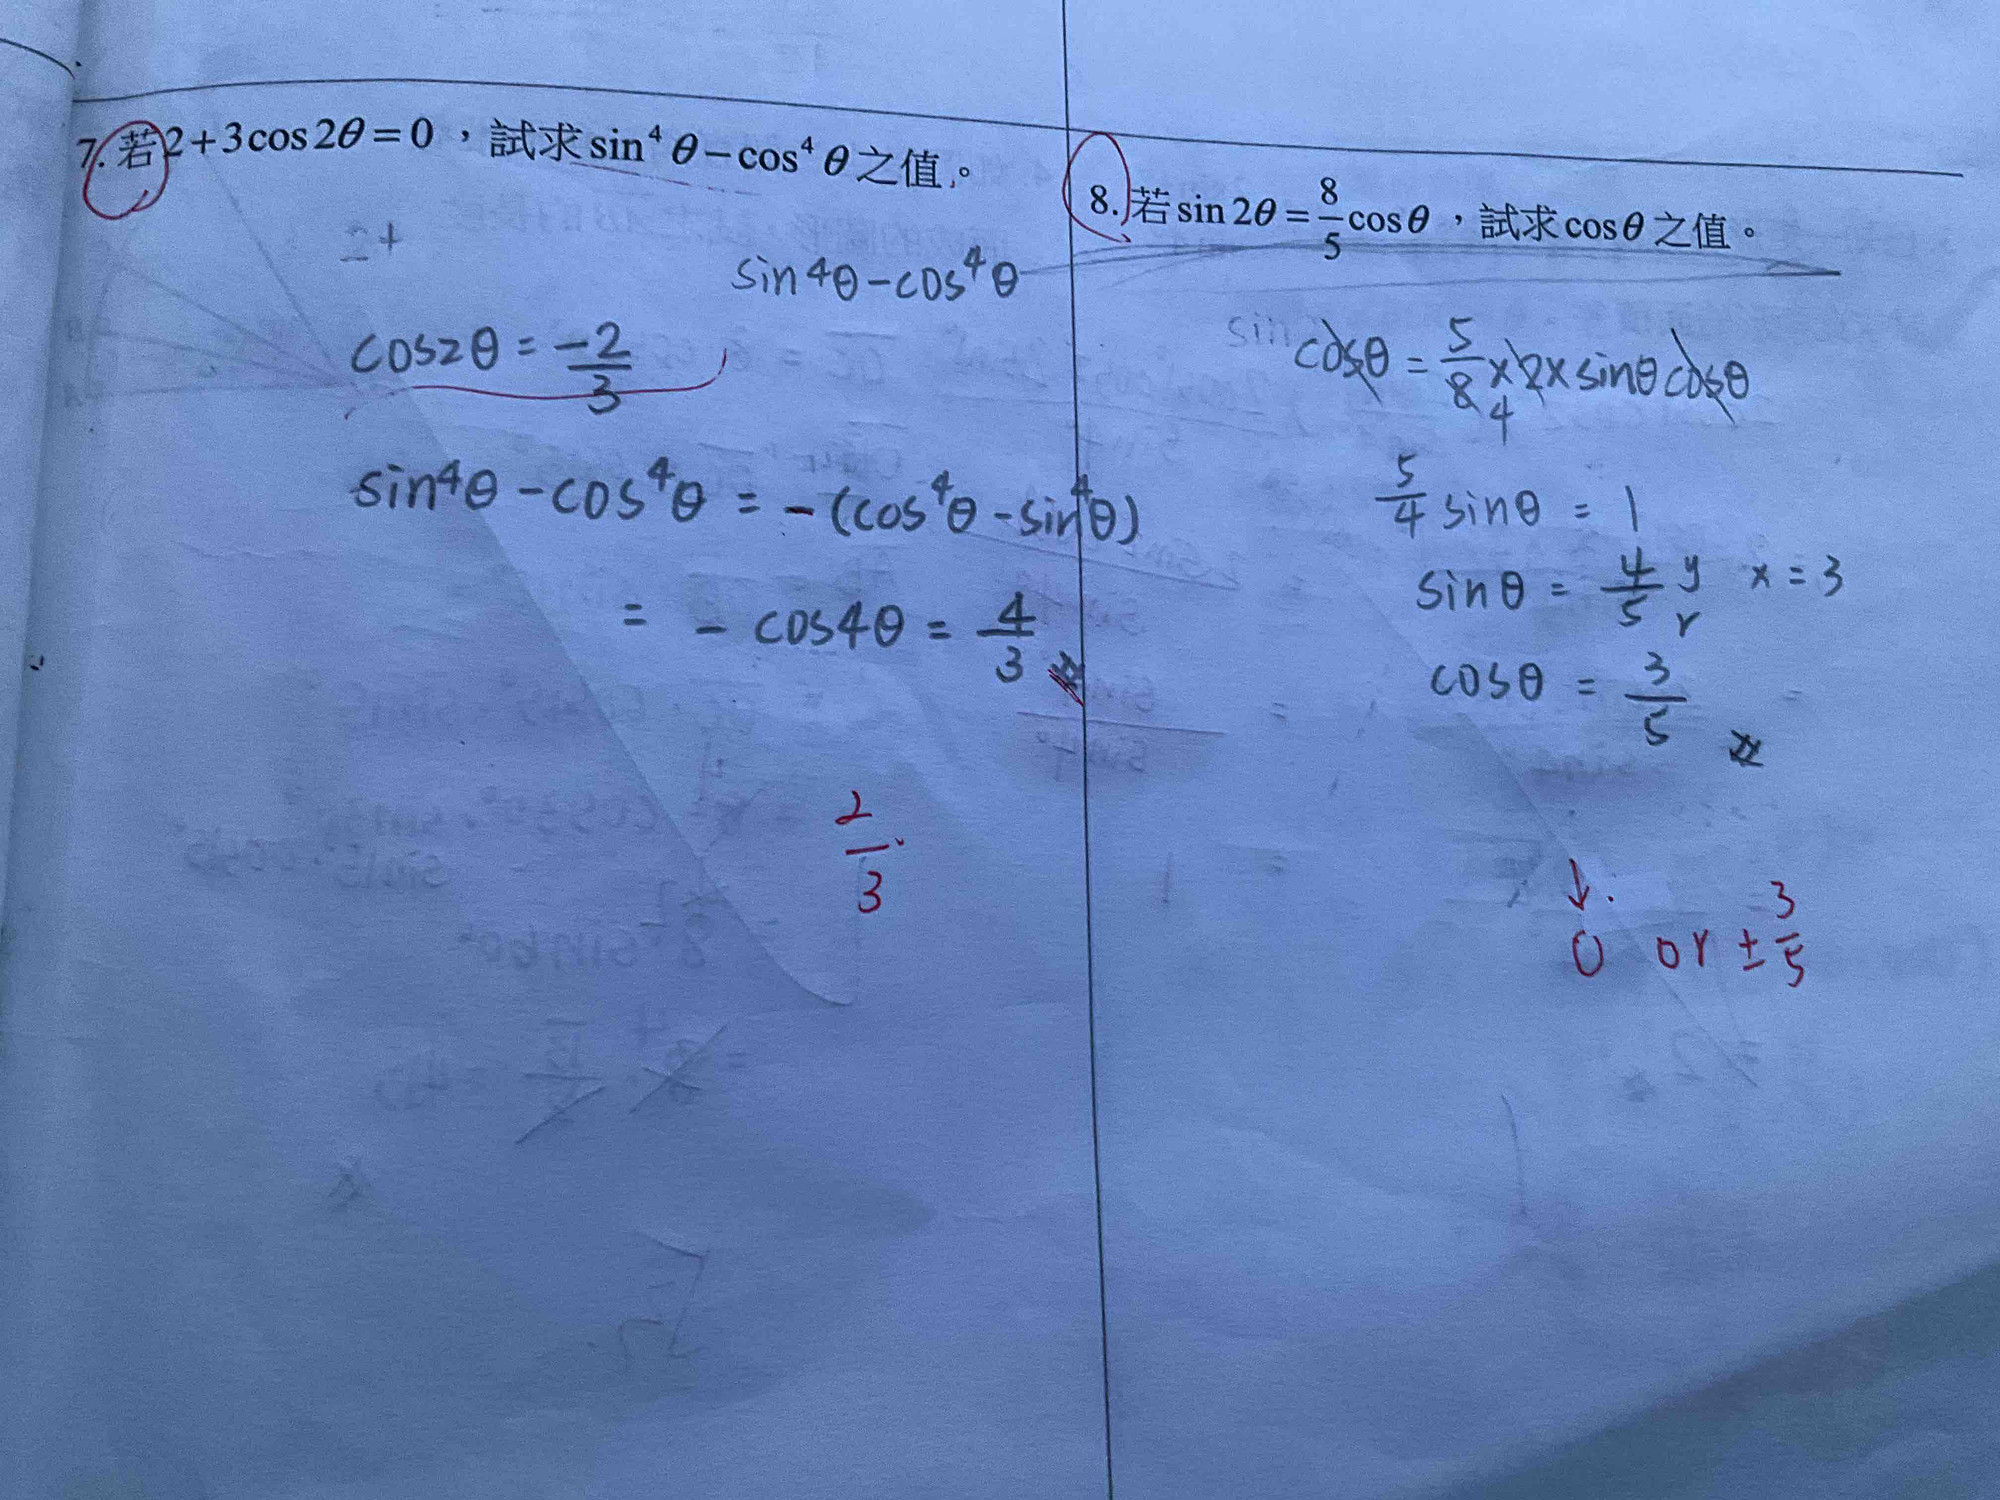 7. 若2+3cos2θ=0，試求sin⁴θ−cos⁴θ之值。
2+
sin4θ−cos⁴θ
cos2θ = −2/3
sin⁴θ −cos⁴θ = −(cos⁴θ −sin⁴θ)
= − cos4θ = 4/3
2/3
8. 若sin2θ=8/5cosθ，試求cosθ之值。
sin cosθ = 5/8 × 2× sinθ cosθ
4
5/4 sinθ = 1
sinθ = 4/5 y r x = 3
cosθ = 3/5
↓
0 or ± 3/5